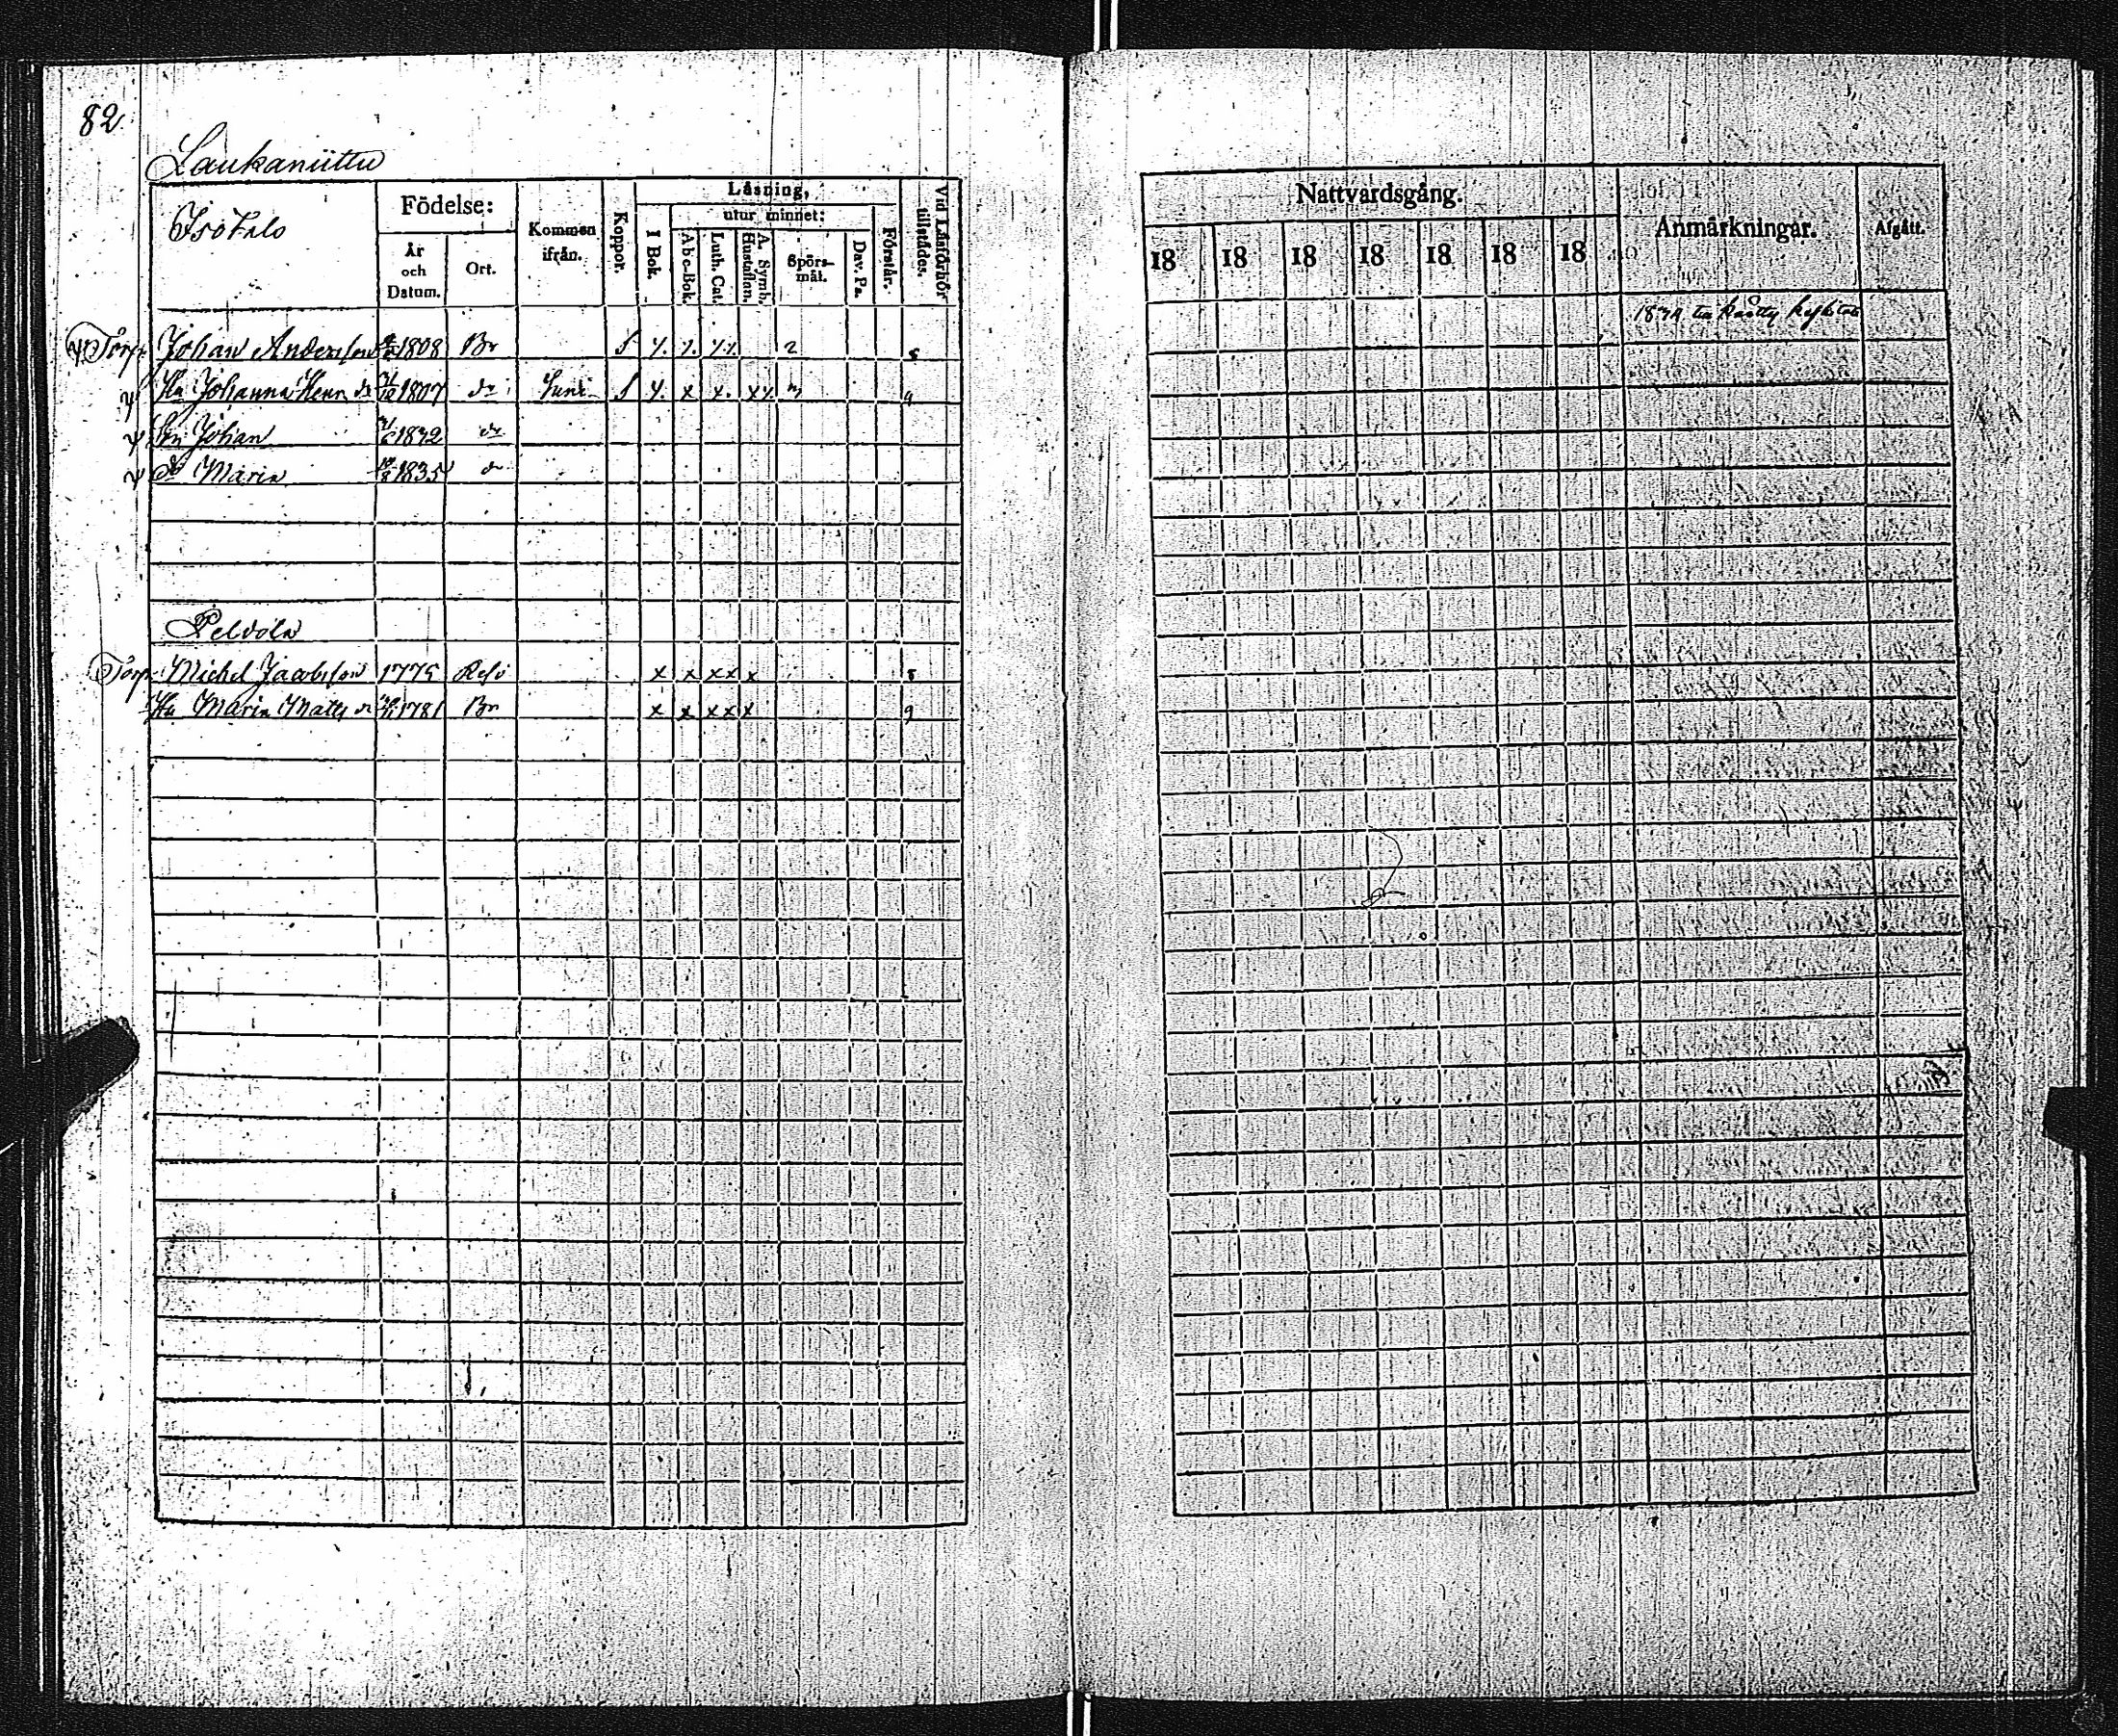 82
Laukaniittu
Isötalo
Födelse:
År och Datum.
Ort.
Kommen ifrån.
Koppor.
Läsning,
I Bok.
utur minnet:
Abc-Bok.
Luth. Cat.
A. Symb. Hustaflan.
Spörsmål.
Dav. Ps.
Förstår.
Vid Läsförhör tillstädes.
Torp. Johan Andersson 1808 Br
Hu Johanna Henr dr 1807 do
Sn Johan 1832 do
D Maria 1835 do
Peldola
Torp. Michel Jacobsson 1775
x x x x x
Hu Maria Matts dr 1781 Br x x x x x 9
Nattvardsgång.
18 18 18 18 18 18 18
Anmärkningar.
Afgått.